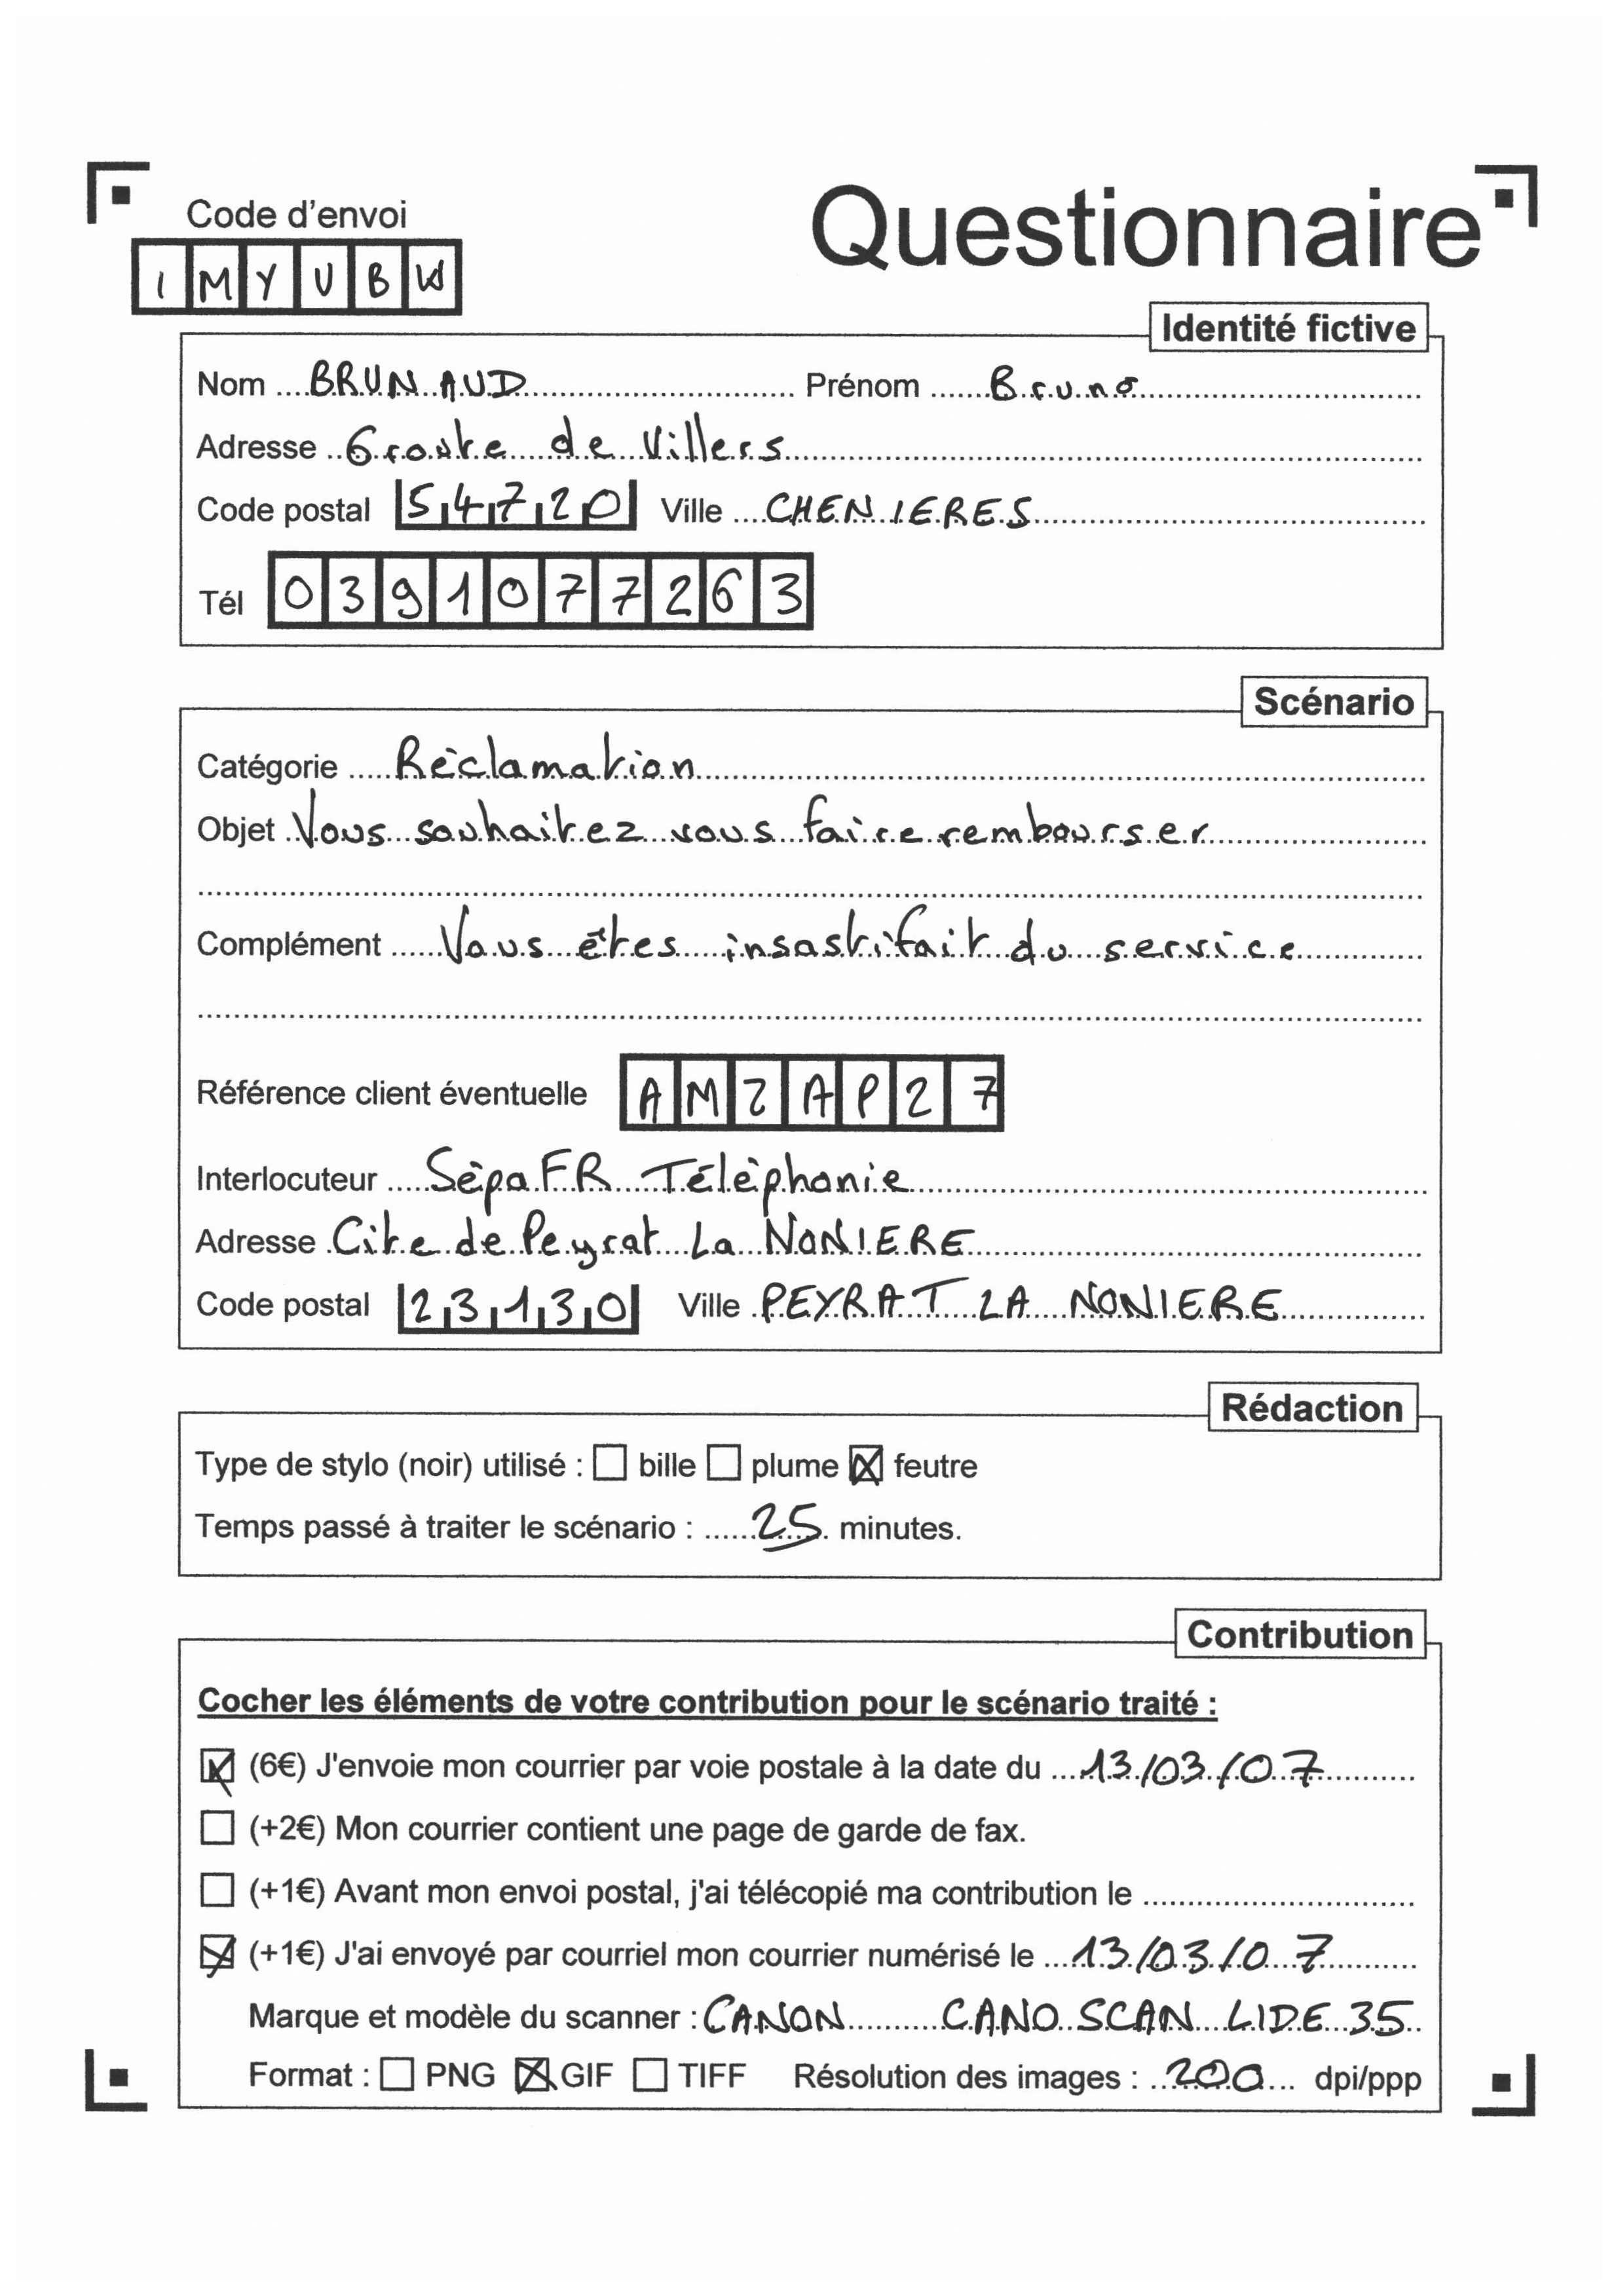 Code d'envoi
Questionnaire
I M Y U B W
Identité fictive
Nom BRUNAUD Prénom Bruno
Adresse 6 route de Villers
Code postal 54720 Ville CHENIERES
Tél 0391077263
Scénario
Catégorie Réclamation
Objet Vous souhaitez vous faire rembourser
Complément Vous êtes insastifait du service
Référence client éventuelle AMZAP27
Interlocuteur SépaFR Téléphonie
Adresse Cite de Peyrat La NONIERE
Code postal 23130 Ville PEYRAT LA NONIERE
Rédaction
Type de stylo (noir) utilisé : bille plume feutre
Temps passé à traiter le scénario : 25 minutes.
Contribution
Cocher les éléments de votre contribution pour le scénario traité :
(6€) J'envoie mon courrier par voie postale à la date du 13/03/07
(+2€) Mon courrier contient une page de garde de fax.
(+1€) Avant mon envoi postal, j'ai télécopié ma contribution le
(+1€) J'ai envoyé par courriel mon courrier numérisé le 13/03/07
Marque et modèle du scanner : CANON CANO SCAN LIDE 35
Format : PNG GIF TIFF Résolution des images : 200 dpi/ppp